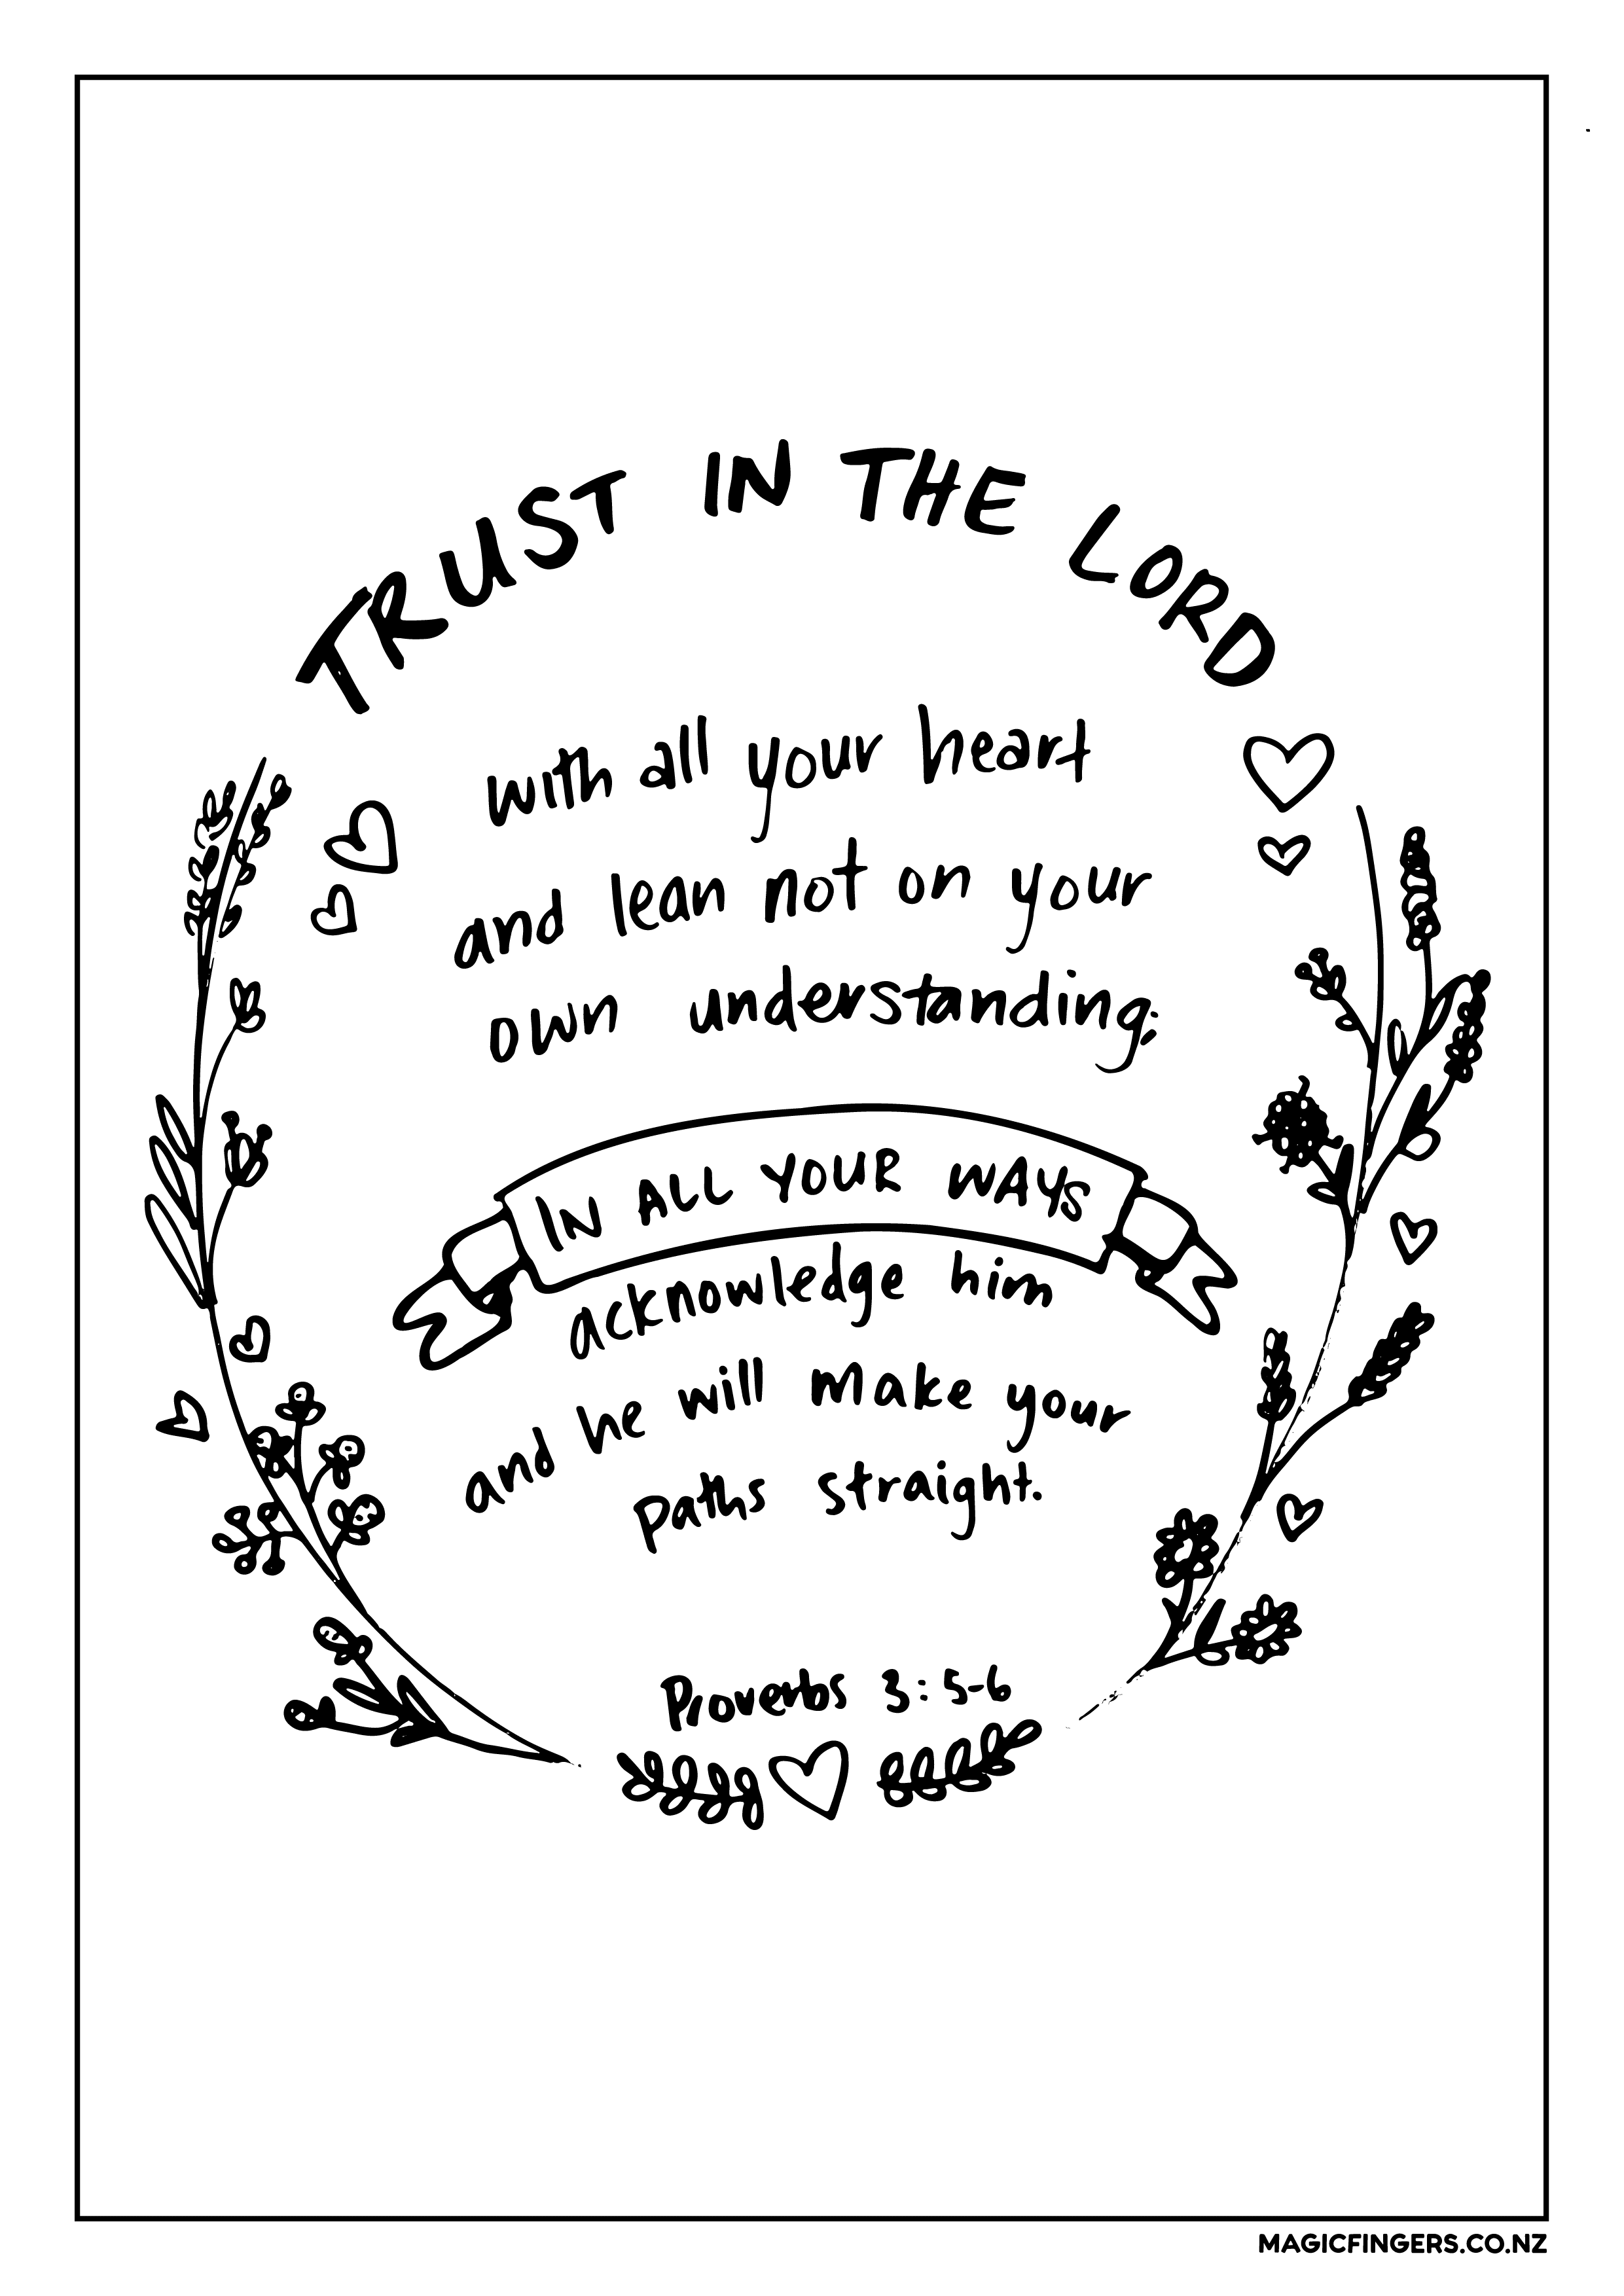 TRUST IN THE LORD
with all your heart
and lean not on your
own understanding;
IN ALL YOUR WAYS
acknowledge him
and he will make your
paths straight.
Proverbs 3:5-6
MAGICFINGERS.CO.NZ